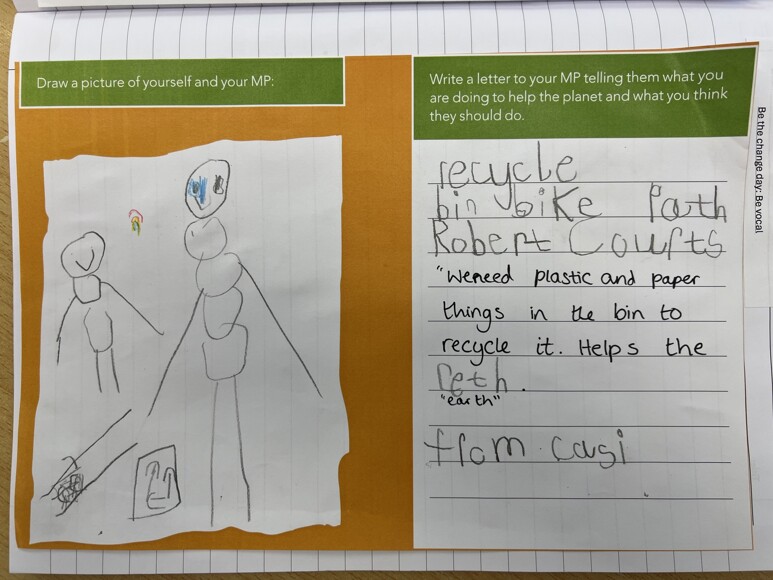 Draw a picture of yourself and your MP:
Write a letter to your MP telling them what you
are doing to help the planet and what you think
they should do.
recycle
bin bike Path
Robert Courts
"We need plastic and paper
things in the bin to
recycle it. Helps the
reth.
"earth"
from casi
Be the change day: Be vocal